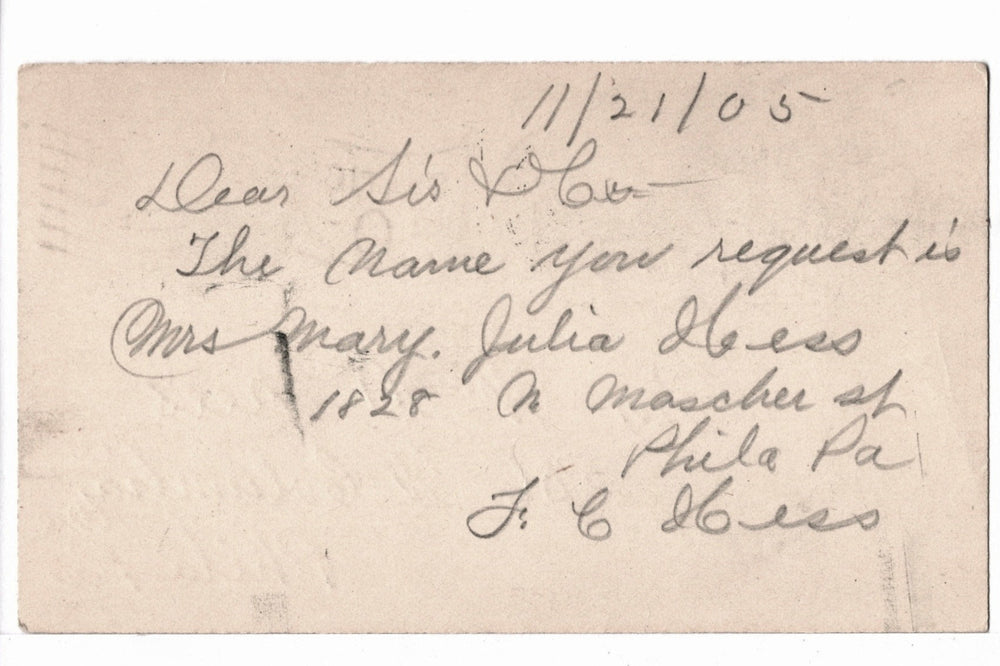 11/21/05
Dear Sis &
The Name you request is
Mrs Mary. Julia Hess
1828 N Mascher st
Phila Pa
F. C Hess